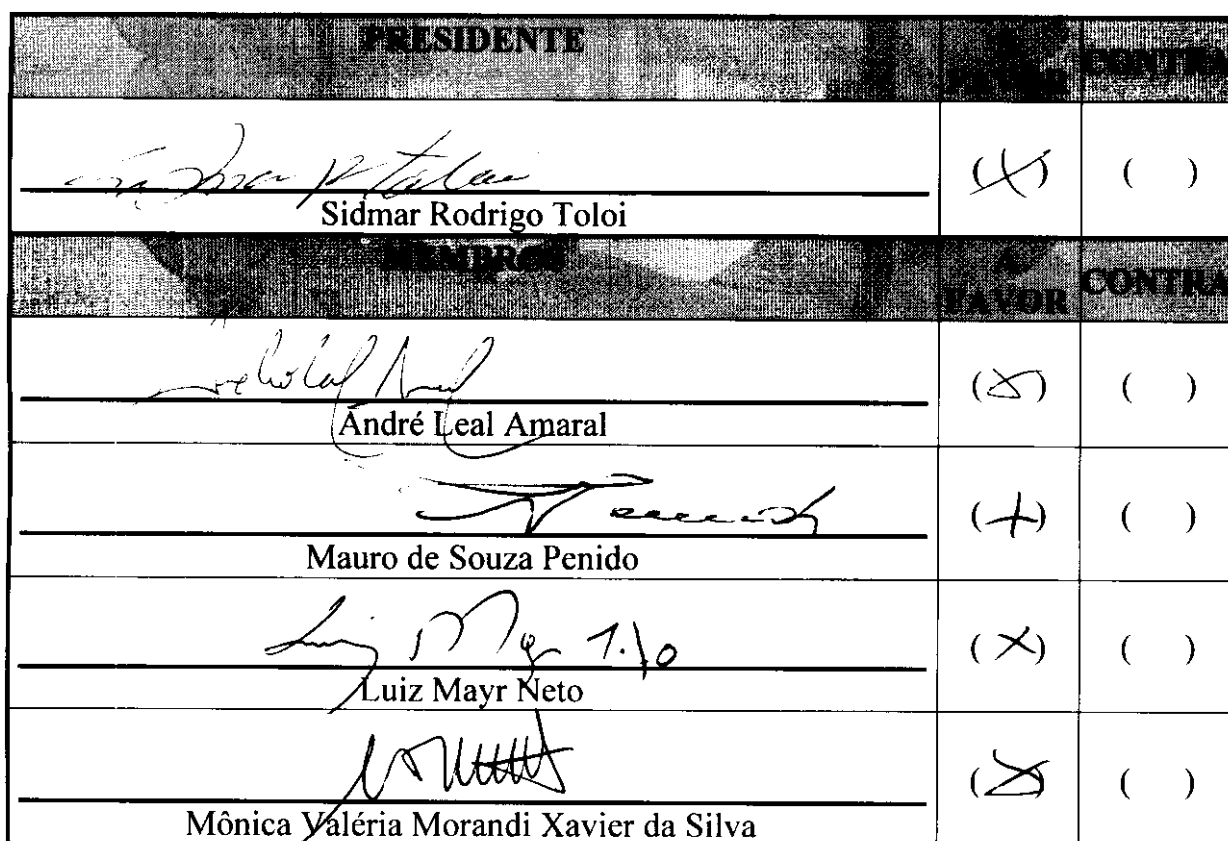 PRESIDENTE A FAVOR CONTRA
(X) ( )
Sidmar Rodrigo Toloi
MEMBROS A FAVOR CONTRA
(X) ( )
André Leal Amaral
(X) ( )
Mauro de Souza Penido
Luiz Mayr (X) ( )
Luiz Mayr Neto
(X) ( )
Mônica Valéria Morandi Xavier da Silva